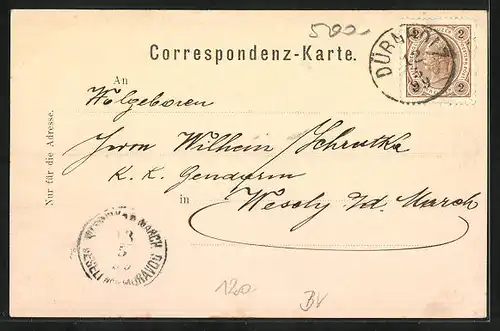 500.-
Correspondenz-Karte.
DÜRNHOLZ
2 2
2 2
An
Wolgeboren
Herrn Wilhelm Schrutka
K. K. Gendarm
in Wesely a/d. March
Nur für die Adresse.
MARCH
VESELÍ MORAVOU
120.-
BV